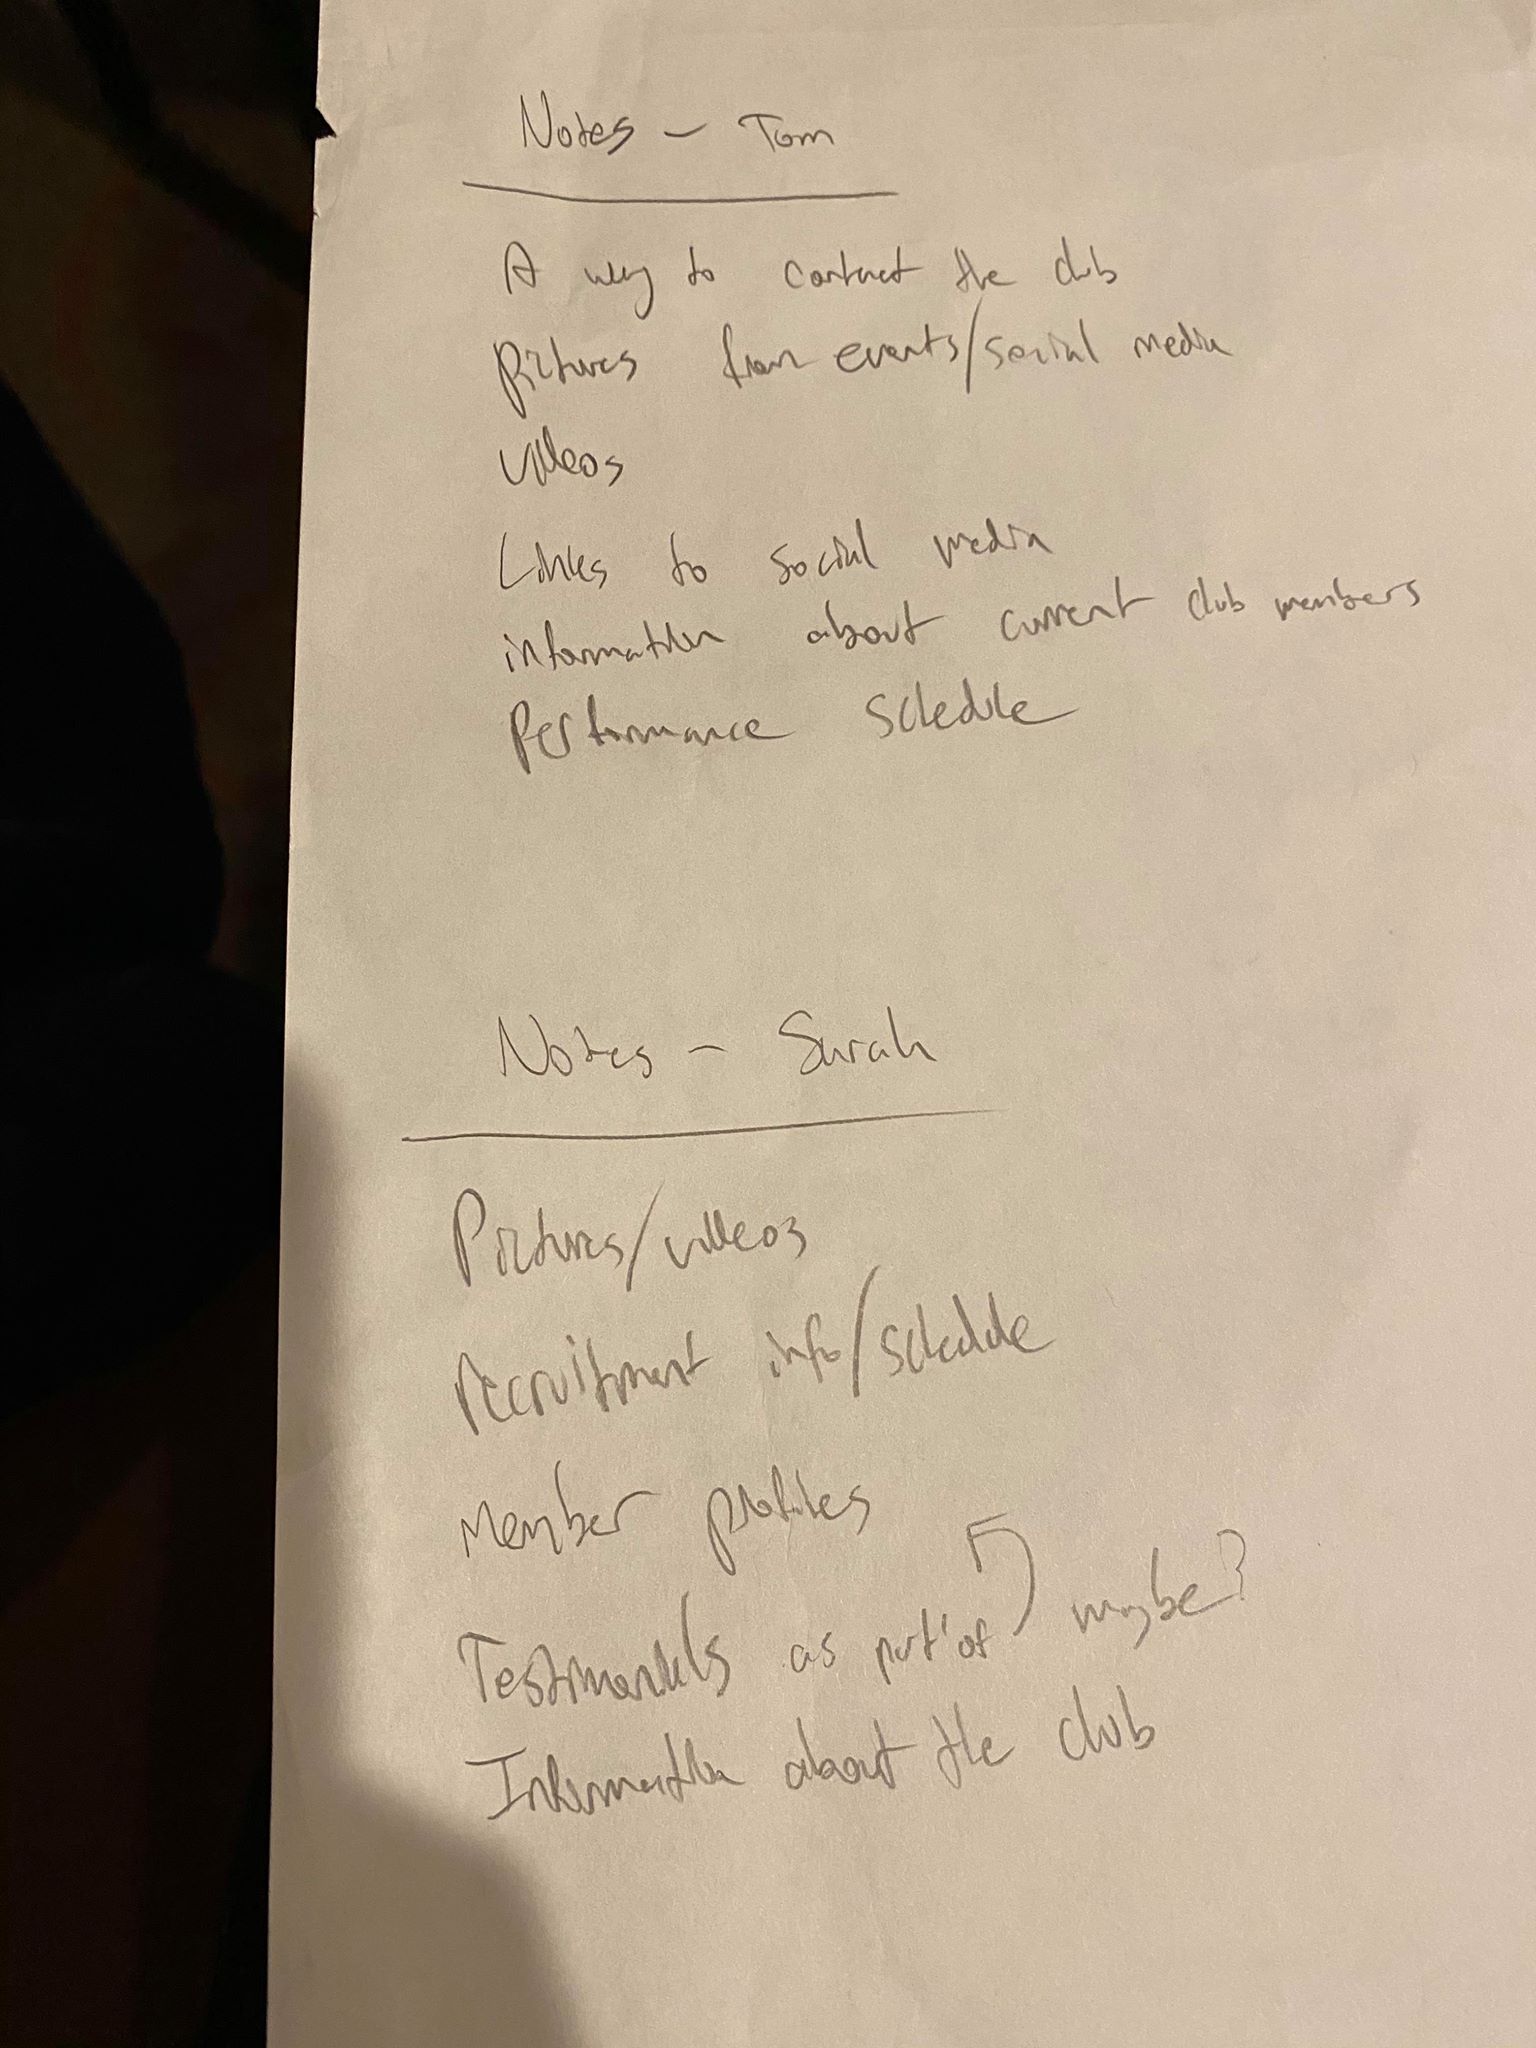 Notes - Tom
A way to contact the club
Pictures from events/social media
videos
Links to social media
information about current club members
Performance schedule
Notes - Sarah
Pictures/videos
recruitment info/schedule
member profiles
Testimonials as part of maybe?
Information about the club